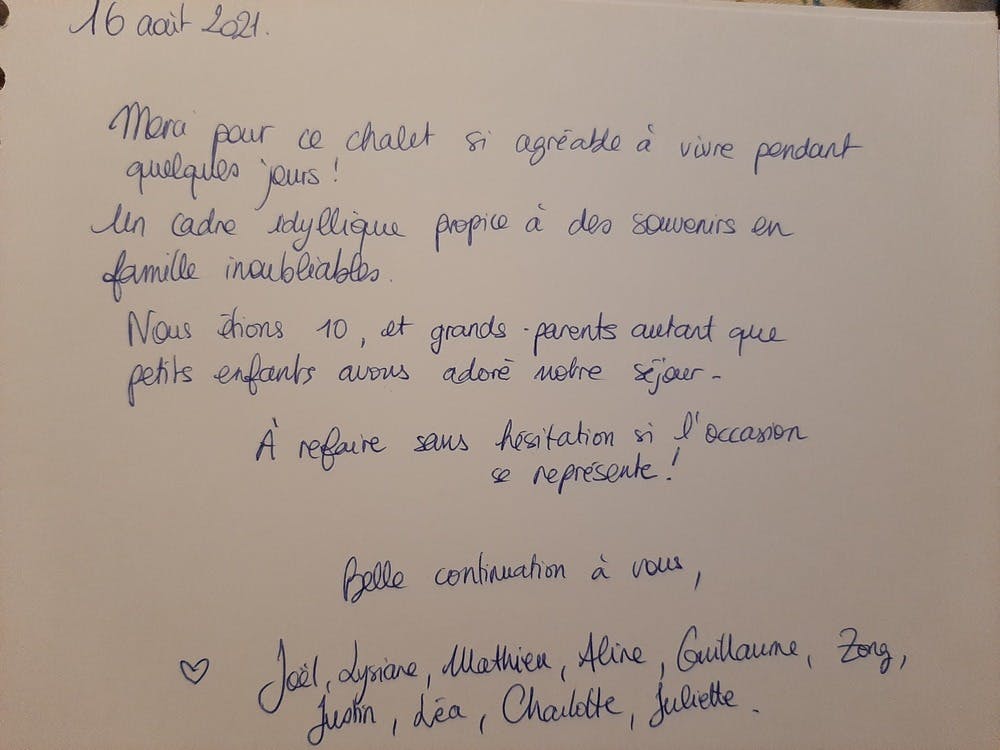 16 août 2021.
Merci pour ce chalet si agréable à vivre pendant
quelques jours !
Un cadre idyllique propice à des souvenirs en
famille inoubliables.
Nous étions 10, et grands-parents autant que
petits enfants avons adoré notre séjour -
À refaire sans hésitation si l'occasion
se représente !
Belle continuation à vous,
♡ Joël, Lysiane, Mathieu, Aline, Guillaume, Zong,
Justin, Léa, Charlotte, Juliette.